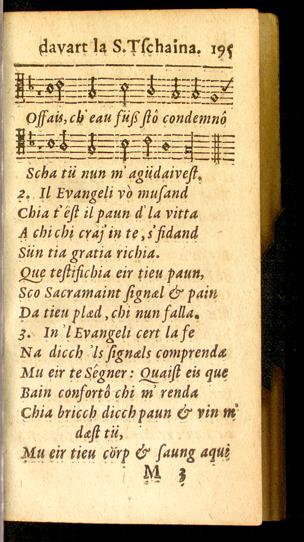 davart la S. Tſchaina. 195
Offais, ch' eau füß ſtô condemnô
Scha tü nun m' agüdaiveſt.
2. Il Evangeli vò muſand
Chia t' ést il paun d' la vitta
A chi chi craj' in te, s' fidand
Sün tia gratia richia.
Que teſtifichia eir tieu paun,
Sco Sacramaint ſignæl & pain
Da tieu plæd, chi nun falla.
3. In 'l Evangeli cert la fe
Na dicch 'ls ſignæls comprenda
Mu eir te Segner: Quaiſt eis que
Bain confortô chi m' renda
Chia bricch dicch paun & vin m'
dæſt tü,
Mu eir tieu cörp & ſaung aqui
M 3